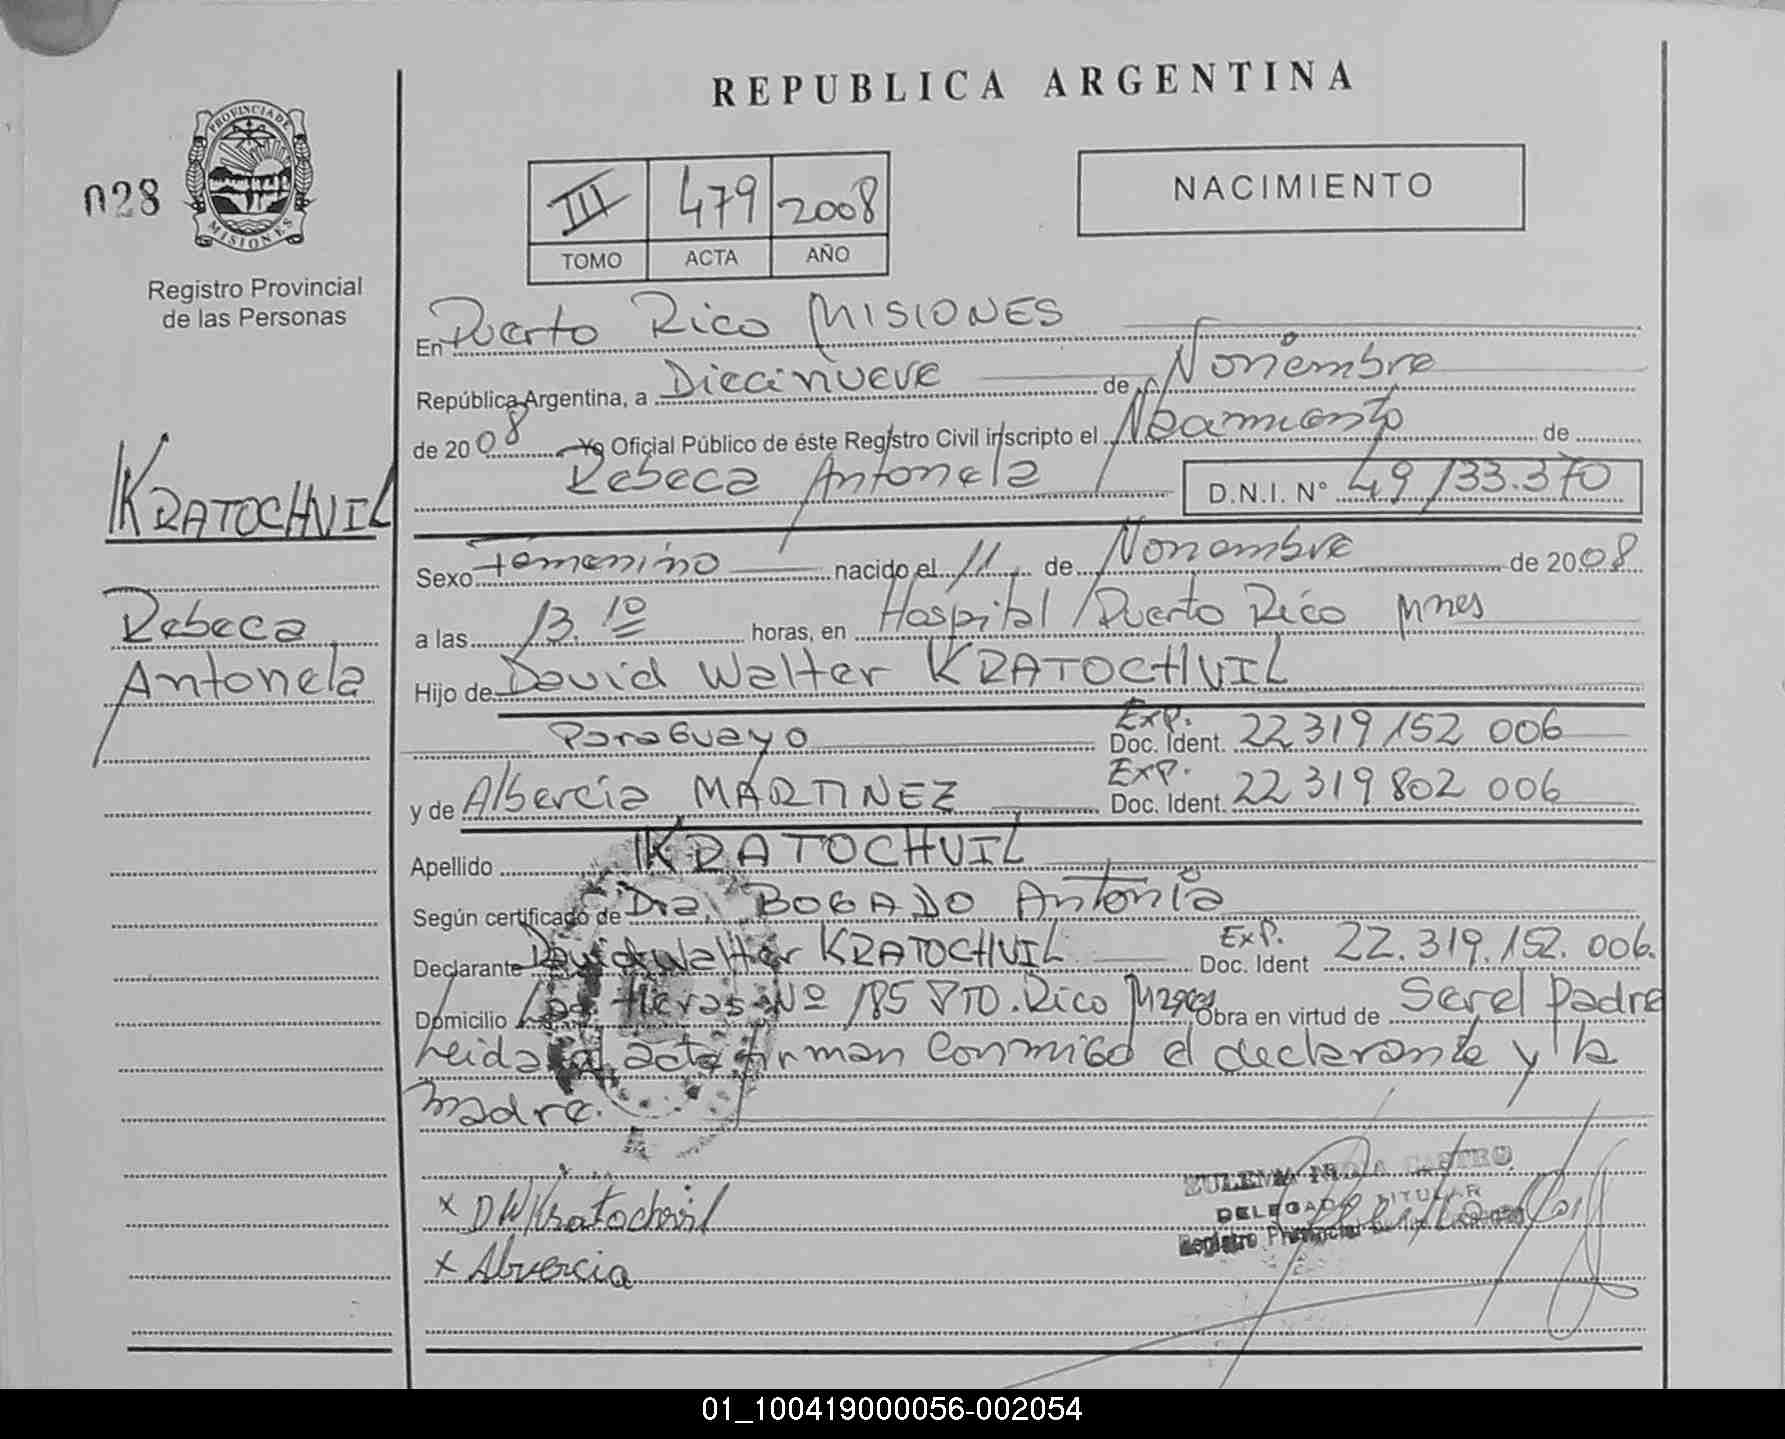 REPUBLICA ARGENTINA
028
PROVINCIA DE
MISIONES
Registro Provincial
de las Personas
III 479 2008
TOMO ACTA AÑO
NACIMIENTO
En Puerto Rico MISIONES
República Argentina, a Diecinueve de Noviembre
de 2008 Yo Oficial Público de éste Registro Civil inscripto el Nacimiento de
Rebeca Antonela D.N.I. N° 49133.370
KRATOCHVIL
Rebeca
Antonela
Sexo Femenino nacido el 11 de Noviembre de 2008
a las 13.10 horas, en Hospital Puerto Rico Mnes
Hijo de David Walter KRATOCHVIL
Paraguayo Exp. Doc. Ident. 22 319 152 006
y de Albercia MARTINEZ Exp. Doc. Ident. 22 319 802 006
Apellido KRATOCHVIL
Según certificado de Dra. BOGADO Antonia
Declarante David Walter KRATOCHVIL Exp. Doc. Ident 22.319.152.006.
Domicilio Las Heras Nº 185 PTO. Rico Obra en virtud de Ser el Padre
Leida el acta firman conmigo el declarante y la
madre.
x DWKratochvil
x Alvercia
ZULEMA CASTRO
DELEGADO TITULAR
Registro Provincial de las Personas
01_100419000056-002054